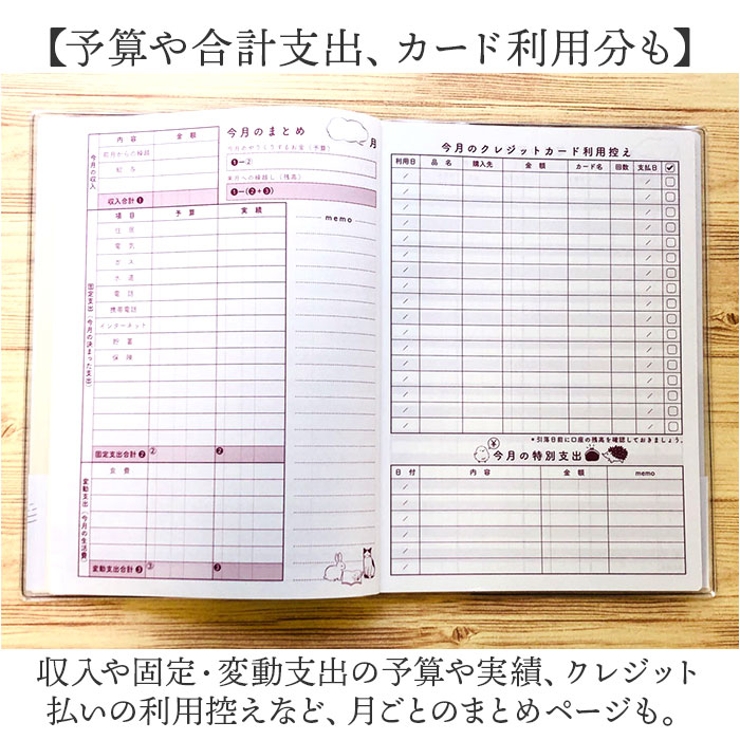 【予算や合計支出、カード利用分も】
今月のまとめ
月
内容 金額
今月の収入
前月からの繰越
給与
収入合計❶
今月のやりくりするお金(予算)
❶−②
来月への繰越し(残高)
❶−(❷+❸)
項目 予算 実績
memo
固定支出(今月の決まった支出)
住居
電気
ガス
水道
電話
携帯電話
インターネット
貯蓄
保険
固定支出合計❷ ② ❷
変動支出(今月の生活費)
食費
変動支出合計❸ ③ ❸
今月のクレジットカード利用控え
利用日 品名 購入先 金額 カード名 回数 支払日
*引落日前に口座の残高を確認しておきましょう。
¥
今月の特別支出
日付 内容 金額 memo
収入や固定・変動支出の予算や実績、クレジット
払いの利用控えなど、月ごとのまとめページも。